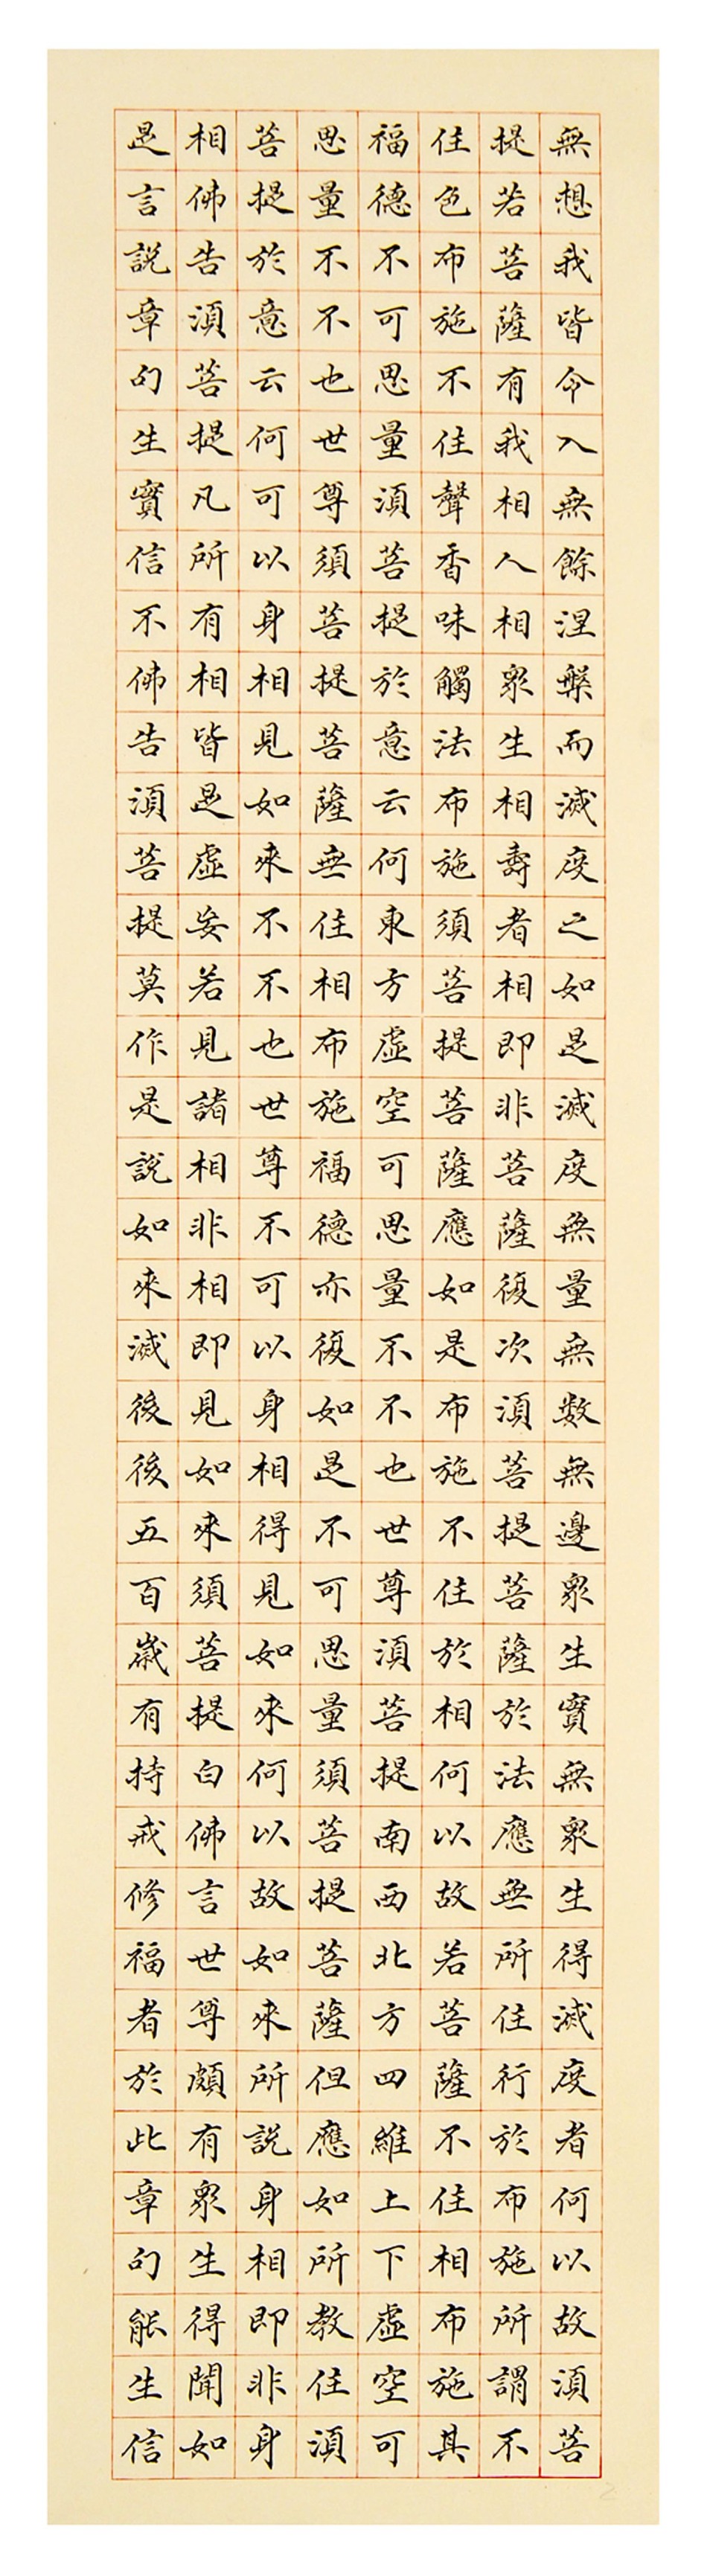 無想我皆令入無餘涅槃而滅度之如是滅度無量無數無邊眾生實無眾生得滅度者何以故須菩
提若菩薩有我相人相眾生相壽者相即非菩薩復次須菩提菩薩於法應無所住行於布施所謂不
住色布施不住聲香味觸法布施須菩提菩薩應如是布施不住於相何以故若菩薩不住相布施其
福德不可思量須菩提於意云何東方虛空可思量不不也世尊須菩提南西北方四維上下虛空可
思量不不也世尊須菩提菩薩無住相布施福德亦復如是不可思量須菩提菩薩但應如所教住須
菩提於意云何可以身相見如來不不也世尊不可以身相得見如來何以故如來所說身相即非身
相佛告須菩提凡所有相皆是虛妄若見諸相非相即見如來須菩提白佛言世尊頗有眾生得聞如
是言說章句生實信不佛告須菩提莫作是說如來滅後後五百歲有持戒修福者於此章句能生信